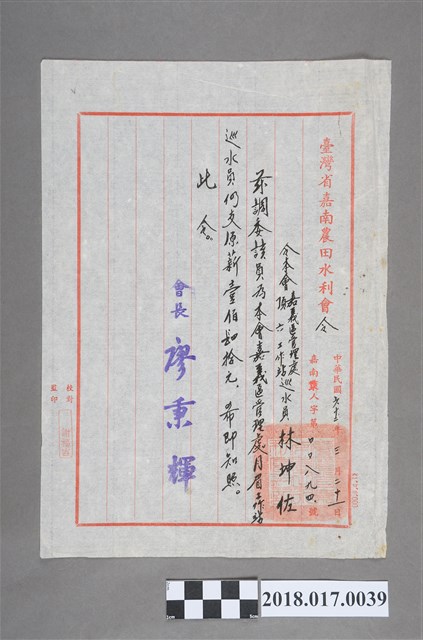 臺灣省嘉南農田水利會令
中華民國六十三年三月二十一日
嘉南農人字第〇〇八九四號
令本會嘉義區管理處
頂六工作站巡水員林坤佐
茲調委該員為本會嘉義區管理處月眉工作站
巡水員仍支原薪壹佰捌拾元。希即知照。
此令。
會長廖秉輝
校對
監印
2018.017.0039